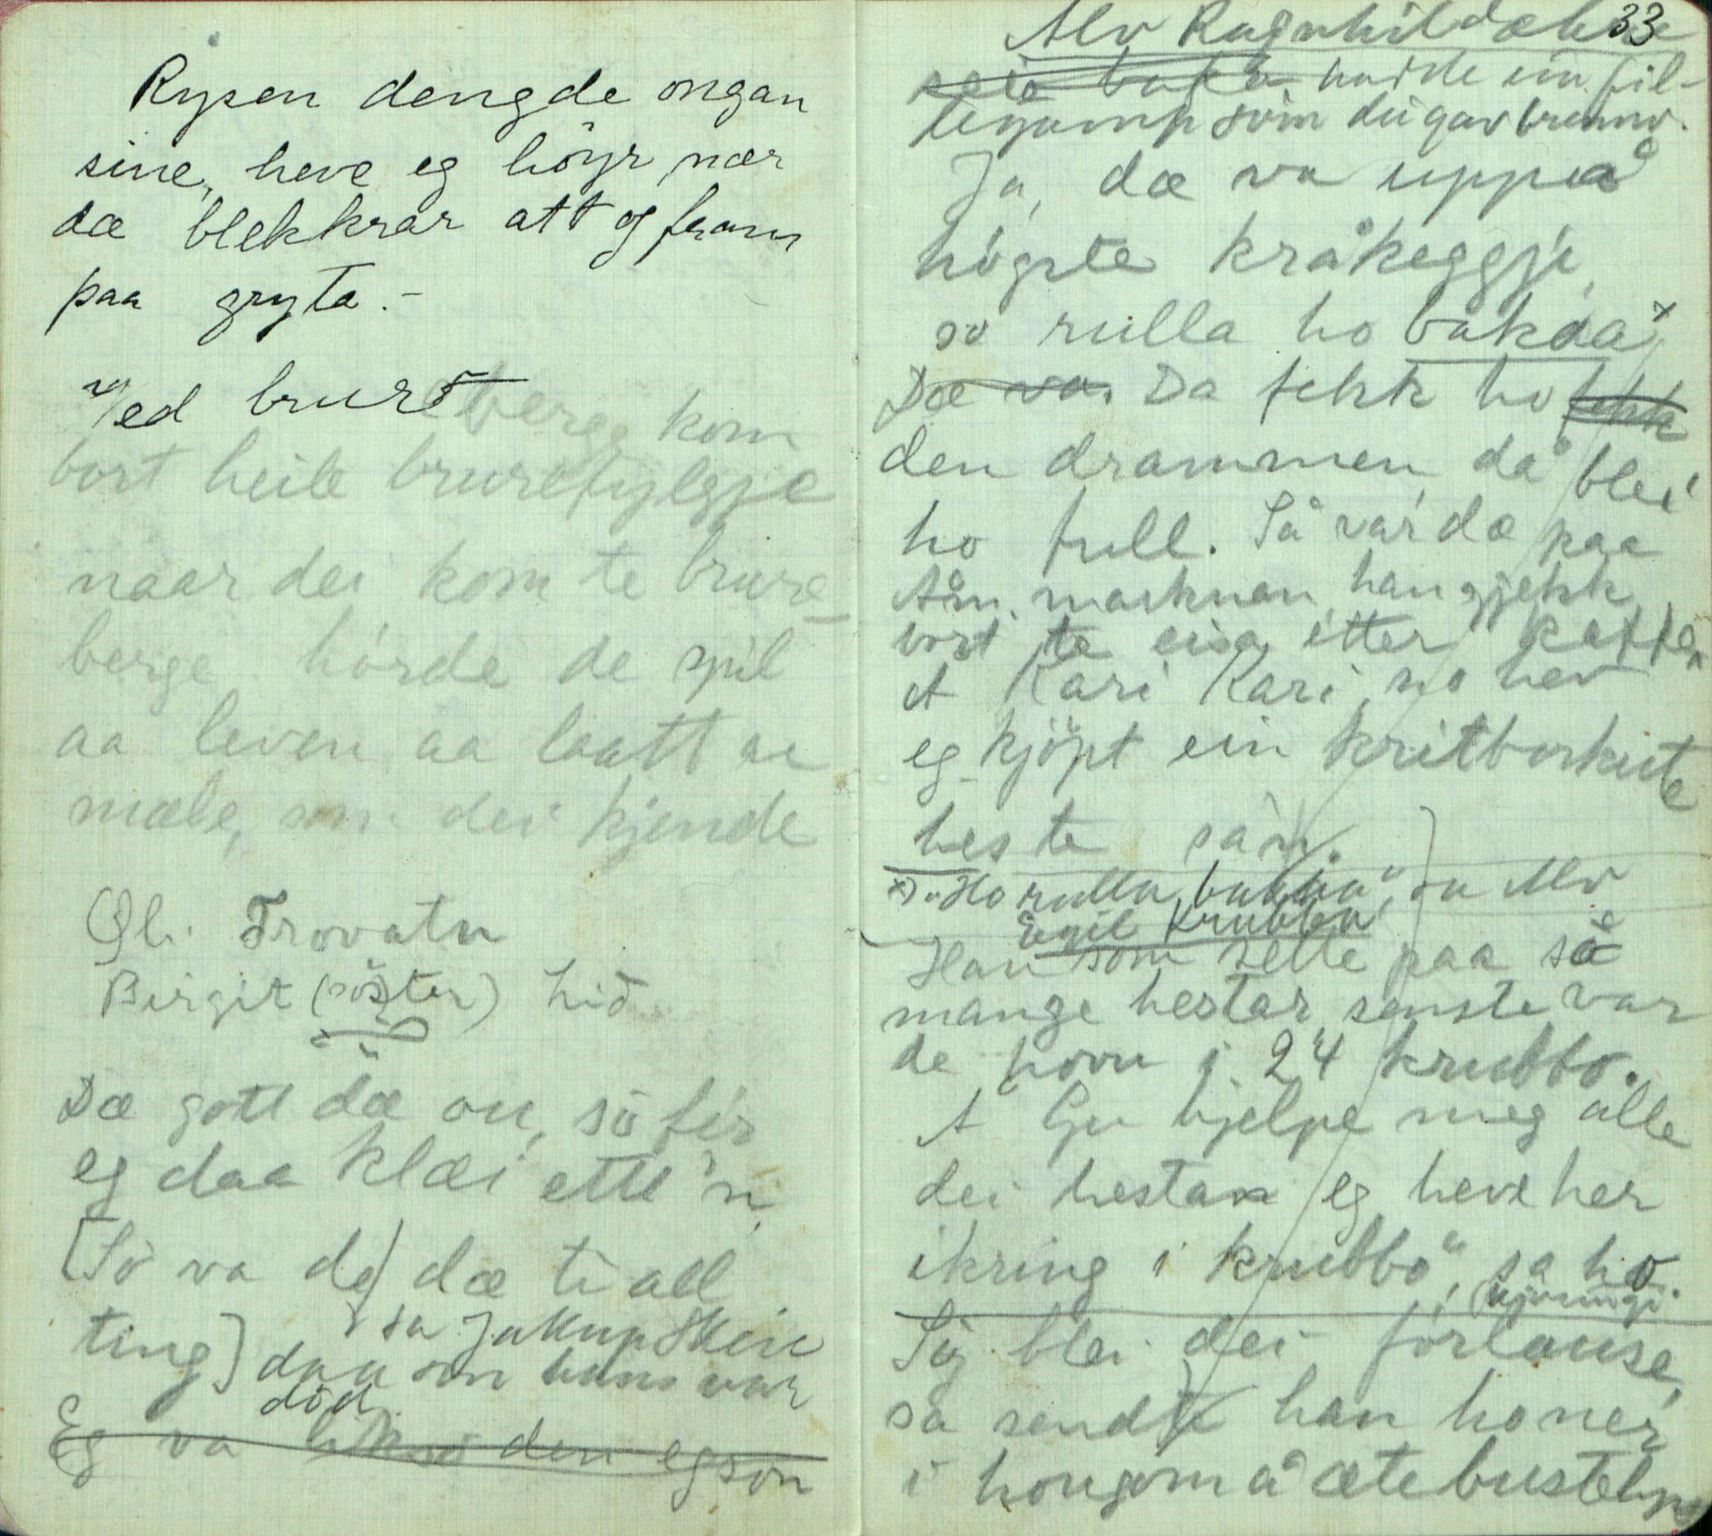 Rysen dengde ongan
sine, heve eg höyr nær
dæ blekkrar att og fram
paa gryta.-
Ved brurebergе kom
bort heile brurefylgje
naar dei kom te brure-
berge hörde de spil
aa leven aa laatt av
mæle, som dei kjende
Ol. Trovatn
Birgit (söster) hid
Dæ gott dæ on, so fér
eg daa klæi ette'n
[So va de) dæ ti all
ting] sa Jakup Skire
daa son hans var
död.
Eg va den egson
33
Alv Ragnhildæ
hadde ein fil-
legamp som dugav
Ja, dæ va uppaa
högste kråkeggje,
so rulla ho bakaa x)
Dæ va. Da fekk ho fekk
den drammen, da blei
ho full. Så var dæ paa
marknan, han gjekk
bort te eisa etter kaffen
A Kari Kari no hev
eg kjöpt ein kritborkute
heste sa'n.
x) "Ho rulla bakaa", sa Alv
Eigil Krubba
Han som sette paa så
mange hestar, senste var
de hovu i 24 krubbo.
A Gu hjelpe meg alle
dei hestan eg heve her
ikring i krubbo", sa ho.
So blei dei fórlause,
så sendte han honer
i hougom å æte